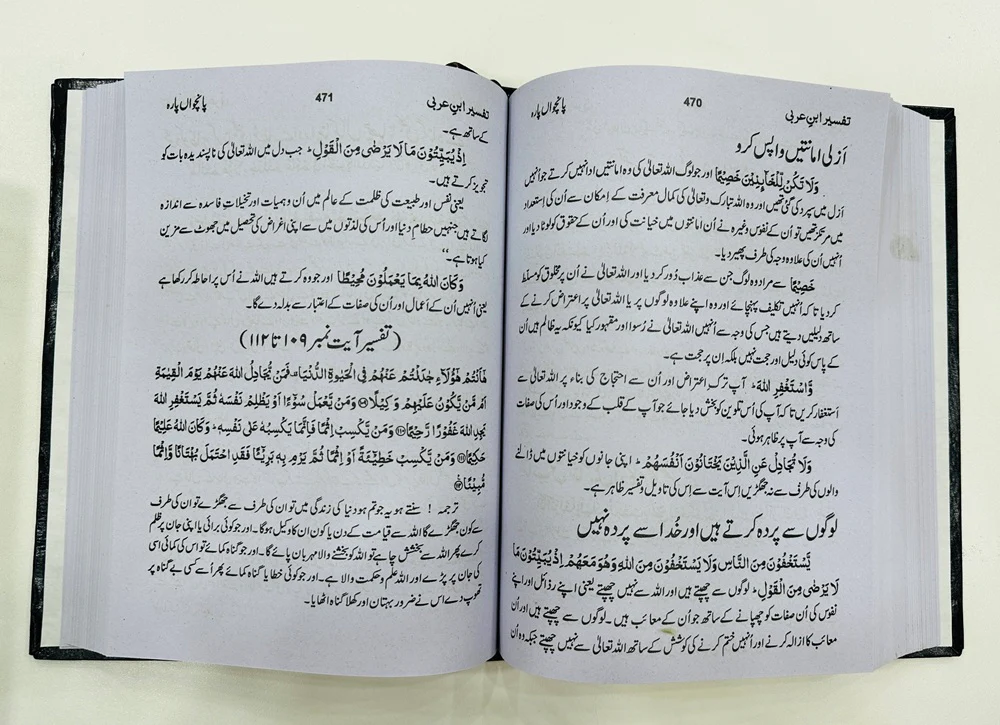 تفسیر ابن عربی 470 پانچواں پارہ
اَزلی امانتیں واپس کرو
وَلَا تَكُنْ لِّلْخَآىِٕنِیْنَ خَصِیْمًا اور جو لوگ اللہ تعالیٰ کی وہ امانتیں ادا نہیں کرتے جو اُنہیں
اَزل میں سپرد کی گئی تھیں اور وہ اللہ تبارک وتعالیٰ کی کمال معرفت کے اِمکان سے اُن کی اِستعداد
میں مرتکز تھیں تو اُن کے نفوس وغیرہ نے اُن امانتوں میں خیانت کی اور اُن کے حقوق کو لوٹا دیا اور
اُنہیں اُن کی علاوہ وجہ کی طرف پھیر دیا۔
خَصِیْمًا سے مراد وہ لوگ جن سے عذاب دُور کر دیا اور اللہ تعالیٰ نے اُن پر مخلوق کو مسلط
کر دیا تا کہ اُنہیں تکلیف پہنچائے اور وہ اپنے علاوہ لوگوں پر یا اللہ تعالیٰ پر اعتراض کرنے کے
ساتھ دلیلیں دیتے ہیں جس کی وجہ سے اُنہیں اللہ تعالیٰ نے رُسوا اور مقہور کیا کیونکہ یہ ظالم ہیں اُن
کے پاس کوئی دلیل اور حجت نہیں بلکہ اِن پر حجت ہے۔
وَّاسْتَغْفِرِ اللهَ ۔ آپ ترکِ اعتراض اور اُن سے احتجاج کی بناء پر اللہ تعالیٰ سے
اِستغفار کریں تا کہ آپ کی اُس تکوین کو بخش دیا جائے جو آپ کے قلب کے وجود اور اُس کی صفات
کی وجہ سے آپ پر ظاہر ہوئی۔
وَلَا تُجَادِلْ عَنِ الَّذِیْنَ یَخْتَانُوْنَ اَنْفُسَهُمْ ۔ اپنی جانوں کو خیانتوں میں ڈالنے
والوں کی طرف سے نہ جھگڑیں اِس آیت سے اِس کی تاویل و تفسیر ظاہر ہے۔
لوگوں سے پردہ کرتے ہیں اور خُدا سے پردہ نہیں
یَّسْتَخْفُوْنَ مِنَ النَّاسِ وَلَا یَسْتَخْفُوْنَ مِنَ اللهِ وَهُوَ مَعَهُمْ اِذْ یُبَیِّتُوْنَ مَا
لَا یَرْضٰى مِنَ الْقَوْلِ ۔ لوگوں سے چھپتے ہیں اور اللہ سے نہیں چھپتے یعنی اپنے رذائل اور اپنے
نفوس کی اُن صفات کو چھپانے کے ساتھ جو اُن کے معائب ہیں ۔ لوگوں سے چھپتے ہیں اور اُن
معائب کا ازالہ کرنے اور اُنہیں ختم کرنے کی کوشش کے ساتھ اللہ تعالیٰ سے نہیں چھپتے جبکہ وہ اُن
تفسیر ابن عربی 471 پانچواں پارہ
کے ساتھ ہے۔
اِذْ یُبَیِّتُوْنَ مَا لَا یَرْضٰى مِنَ الْقَوْلِ ۔ جب دل میں اللہ تعالیٰ کی ناپسندیدہ بات کو
تجویز کرتے ہیں۔
یعنی نفس اور طبیعت کی ظلمت کے عالم میں اُن وہمیات اور تخیلاتِ فاسدہ سے اندازہ
لگاتے ہیں جنہیں حطامِ دنیا اور اُس کی لذتوں میں سے اپنی اغراض کی تحصیل میں جھوٹ سے مزین
کیا ہوتا ہے۔‘‘
وَكَانَ اللهُ بِمَا یَعْمَلُوْنَ مُحِیْطًا اور جو وہ کرتے ہیں اللہ نے اُس پر احاطہ کر رکھا ہے
یعنی اُنہیں اُن کے اَعمال اور اُن کی صفات کے اعتبار سے بدلہ دے گا۔
(تفسیر آیت نمبر ۱۰۹ تا ۱۱۲)
هٰۤاَنْتُمْ هٰۤؤُلَآءِ جٰدَلْتُمْ عَنْهُمْ فِی الْحَیٰوةِ الدُّنْیَا ۫ فَمَنْ یُّجَادِلُ اللهَ عَنْهُمْ یَوْمَ الْقِیٰمَةِ
اَمْ مَّنْ یَّكُوْنُ عَلَیْهِمْ وَكِیْلًا ۝ وَمَنْ یَّعْمَلْ سُوْٓءًا اَوْ یَظْلِمْ نَفْسَهٗ ثُمَّ یَسْتَغْفِرِ اللهَ
یَجِدِ اللهَ غَفُوْرًا رَّحِیْمًا ۝ وَمَنْ یَّكْسِبْ اِثْمًا فَاِنَّمَا یَكْسِبُهٗ عَلٰى نَفْسِهٖ ۚ وَكَانَ اللهُ عَلِیْمًا
حَكِیْمًا ۝ وَمَنْ یَّكْسِبْ خَطِیْٓئَةً اَوْ اِثْمًا ثُمَّ یَرْمِ بِهٖ بَرِیْٓـًٔا فَقَدِ احْتَمَلَ بُهْتَانًا وَّاِثْمًا
مُّبِیْنًا ۝
ترجمہ ! سنتے ہو یہ جو تم ہو دنیا کی زندگی میں تو ان کی طرف سے جھگڑے تو ان کی طرف
سے کون جھگڑے گا اللہ سے قیامت کے دن یا کون ان کا وکیل ہوگا۔ اور جو کوئی برائی یا اپنی جان پر ظلم
کرے پھر اللہ سے بخشش چاہے تو اللہ کو بخشنے والا مہربان پائے گا۔ اور جو گناہ کمائے تو اس کی کمائی اسی
کی جان پر پڑے اور اللہ علم و حکمت والا ہے۔ اور جو کوئی خطا یا گناہ کمائے پھر اُسے کسی بے گناہ پر
تھوپ دے اس نے ضرور بہتان اور کھلا گناہ اٹھایا۔